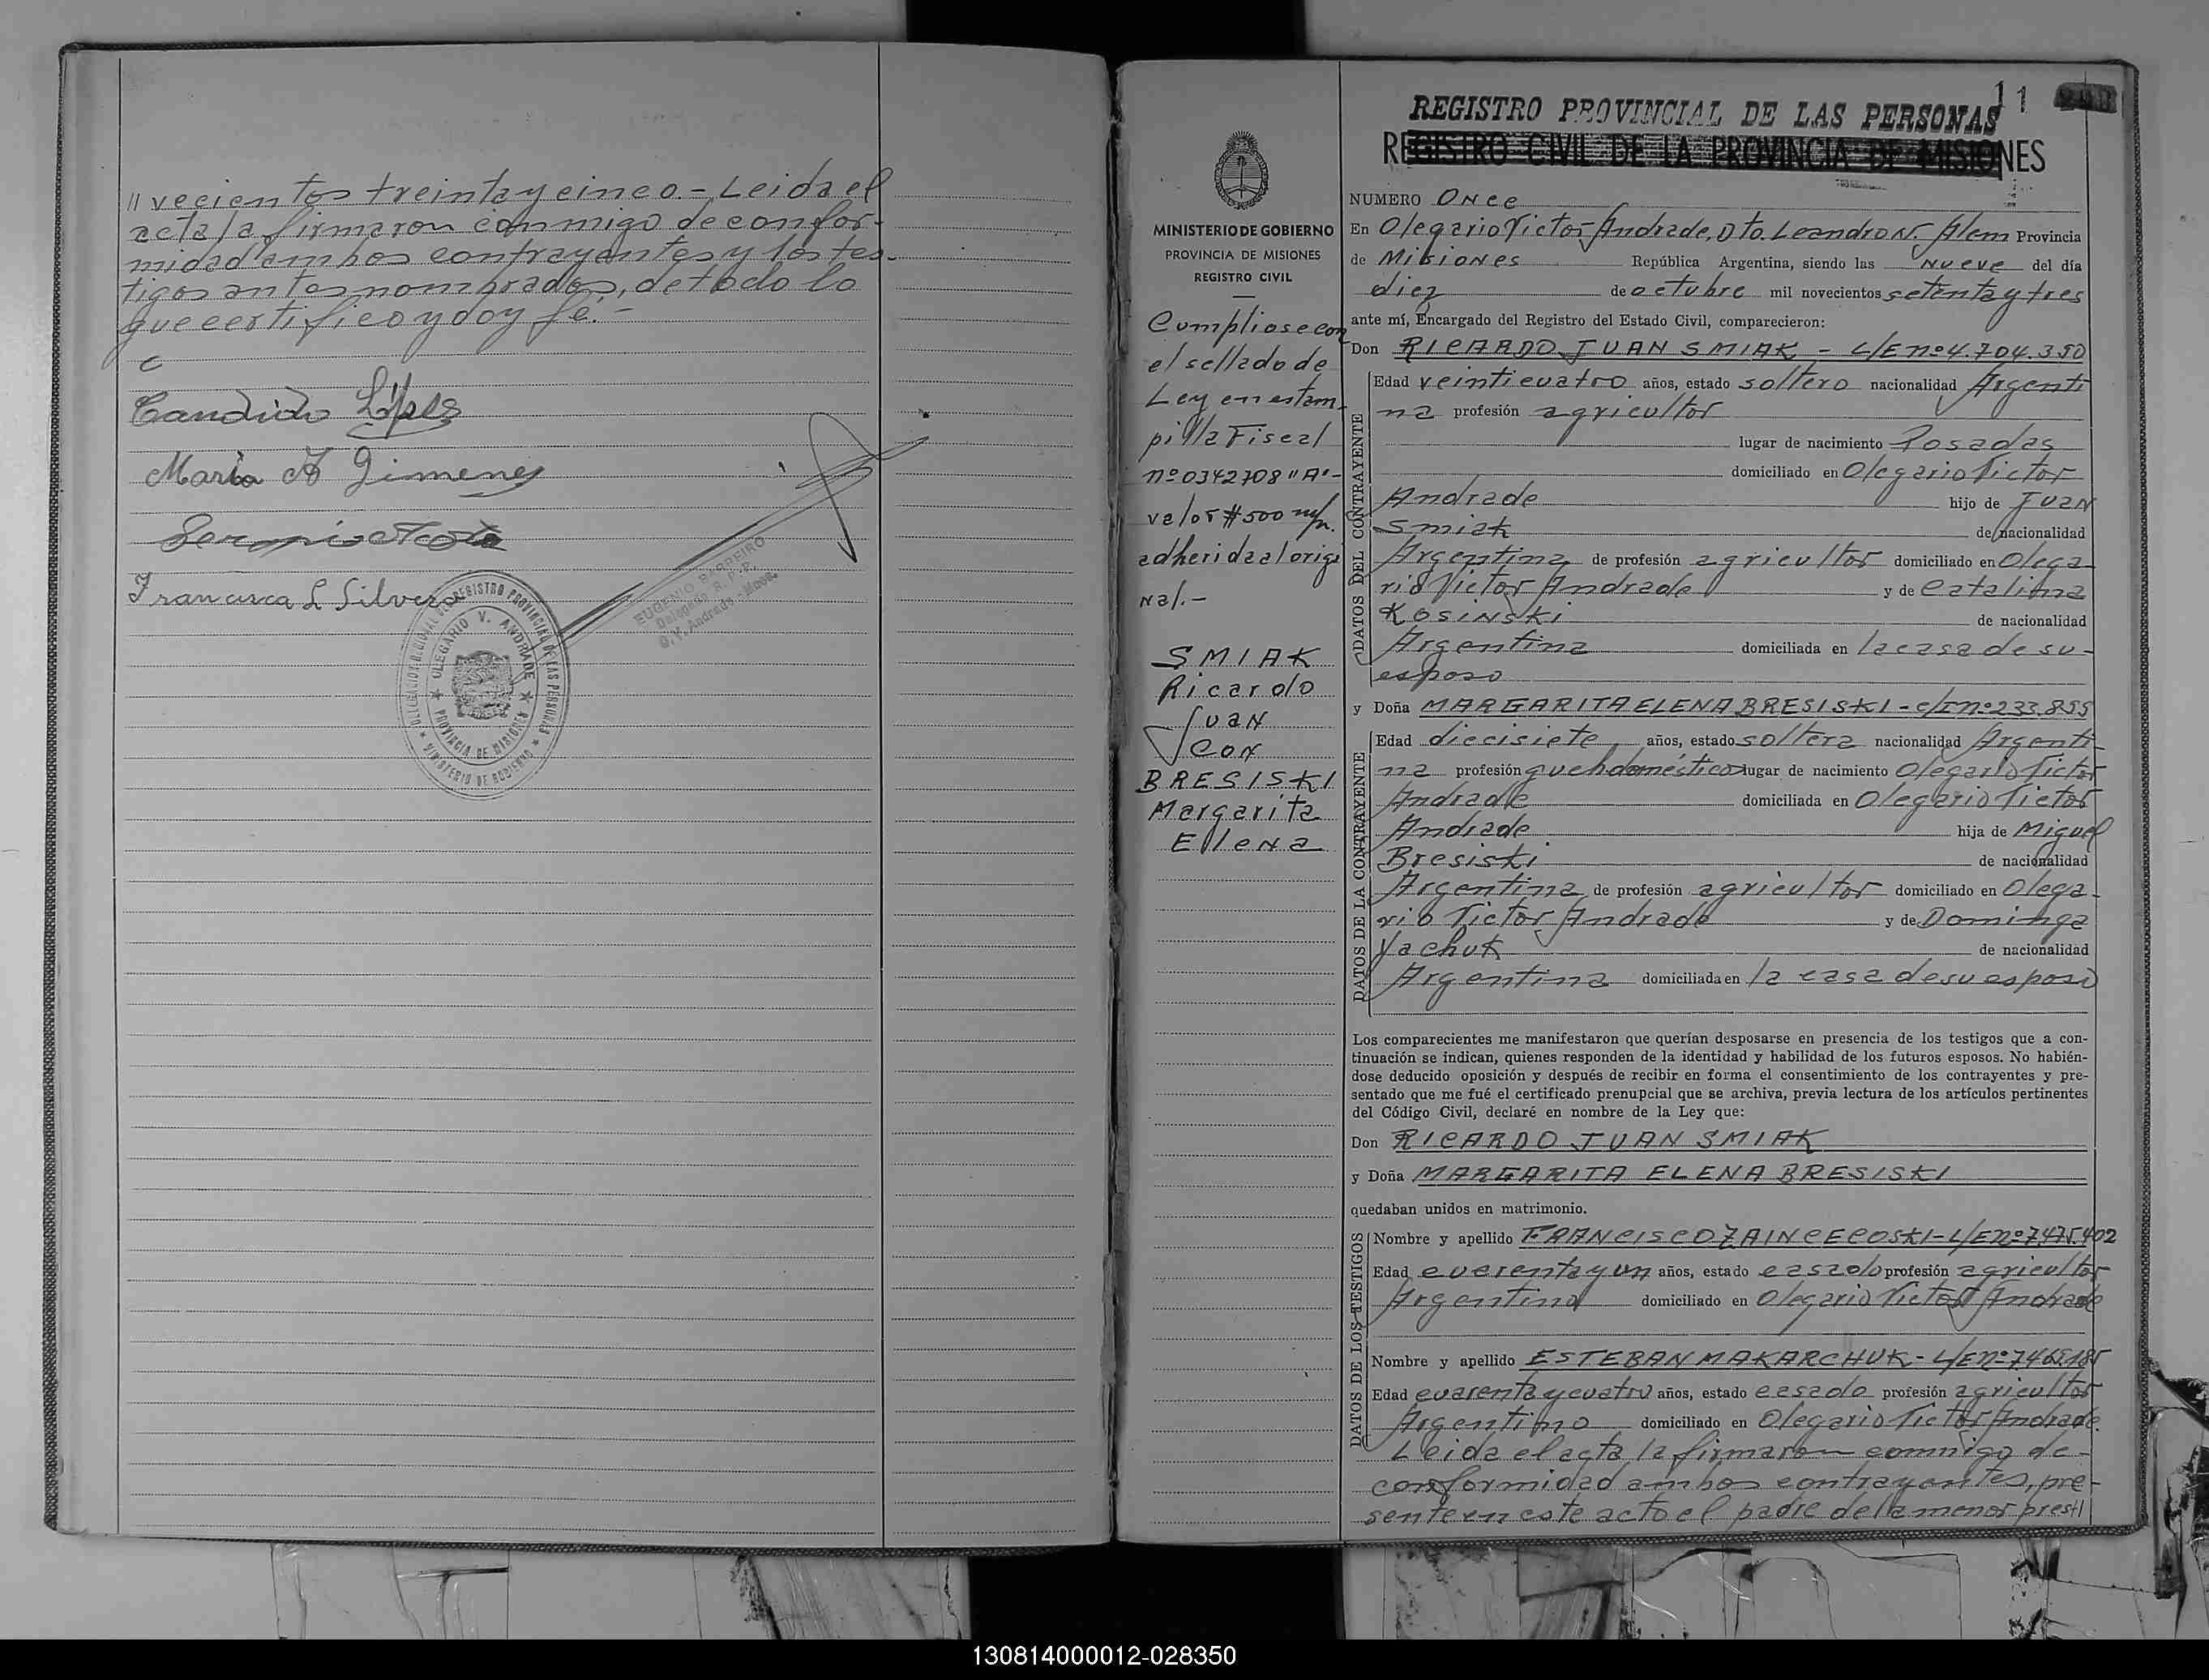 // vecientos treinta y cinco.- Leida el
acta la firmaron conmigo de confor-
midad ambos contrayentes y los tes-
tigos antes nombrados, de todo lo
que certifico y doy fé.-
Candido López
Maria A Gimenez
Francisca L Silvero
EUGENIO BARREIRO
Delegado R. P. P.
O. V. Andrade - Mnes.
DELEGACION REGIONAL DEL REGISTRO PROVINCIAL DE LAS PERSONAS
OLEGARIO V. ANDRADE
PROVINCIA DE MISIONES
MINISTERIO DE GOBIERNO
MINISTERIO DE GOBIERNO
PROVINCIA DE MISIONES
REGISTRO CIVIL
Cumpliose con
el sellado de
Ley en estam-
pilla Fiscal
nº 0342708 "A"-
valor $ 500 m/n.
adherida al origi
nal.-
SMIAK
Ricardo
Juan
con
BRESISKI
Margarita
Elena
11
REGISTRO PROVINCIAL DE LAS PERSONAS
REGISTRO CIVIL DE LA PROVINCIA DE MISIONES
NUMERO Once
En Olegario Victor Andrade, Dto. Leandro N. Alem Provincia
de Misiones República Argentina, siendo las nueve del día
diez de octubre mil novecientos setenta y tres
ante mí, Encargado del Registro del Estado Civil, comparecieron:
Don RICARDO JUAN SMIAK - L/E nº 4.704.350
DATOS DEL CONTRAYENTE
Edad veinticuatro años, estado soltero nacionalidad Argenti
na profesión agricultor
lugar de nacimiento Posadas
domiciliado en Olegario Victor
Andrade hijo de Juan
Smiak de nacionalidad
Argentina de profesión agricultor domiciliado en Olega-
rio Victor Andrade y de Catalina
Kosinski de nacionalidad
Argentina domiciliada en la casa de su-
esposo
y Doña MARGARITA ELENA BRESISKI - C/I nº 233.855
DATOS DE LA CONTRAYENTE
Edad diecisiete años, estado soltera nacionalidad Argenti-
na profesión quehdomésticos lugar de nacimiento Olegario Victor
Andrade domiciliada en Olegario Victor
Andrade hija de Miguel
Bresiski de nacionalidad
Argentina de profesión agricultor domiciliado en Olega-
rio Victor Andrade y de Dominga
Yachuk de nacionalidad
Argentina domiciliada en la casa de su esposo
Los comparecientes me manifestaron que querían desposarse en presencia de los testigos que a con-
tinuación se indican, quienes responden de la identidad y habilidad de los futuros esposos. No habién-
dose deducido oposición y después de recibir en forma el consentimiento de los contrayentes y pre-
sentado que me fué el certificado prenupcial que se archiva, previa lectura de los artículos pertinentes
del Código Civil, declaré en nombre de la Ley que:
Don RICARDO JUAN SMIAK
y Doña MARGARITA ELENA BRESISKI
quedaban unidos en matrimonio.
DATOS DE LOS TESTIGOS
Nombre y apellido FRANCISCO ZAINCECOSKI - L/E nº 7.475.402
Edad cuarenta y un años, estado casado profesión agricultor
Argentino domiciliado en Olegario Victor Andrade
Nombre y apellido ESTEBAN MAKARCHUK - L/E nº 7.465.185
Edad cuarenta y cuatro años, estado casado profesión agricultor
Argentino domiciliado en Olegario Victor Andrade.
Leida el acta la firmaron conmigo de-
conformidad ambos contrayentes, pre-
sente en este acto el padre de la menor prest//
130814000012-028350